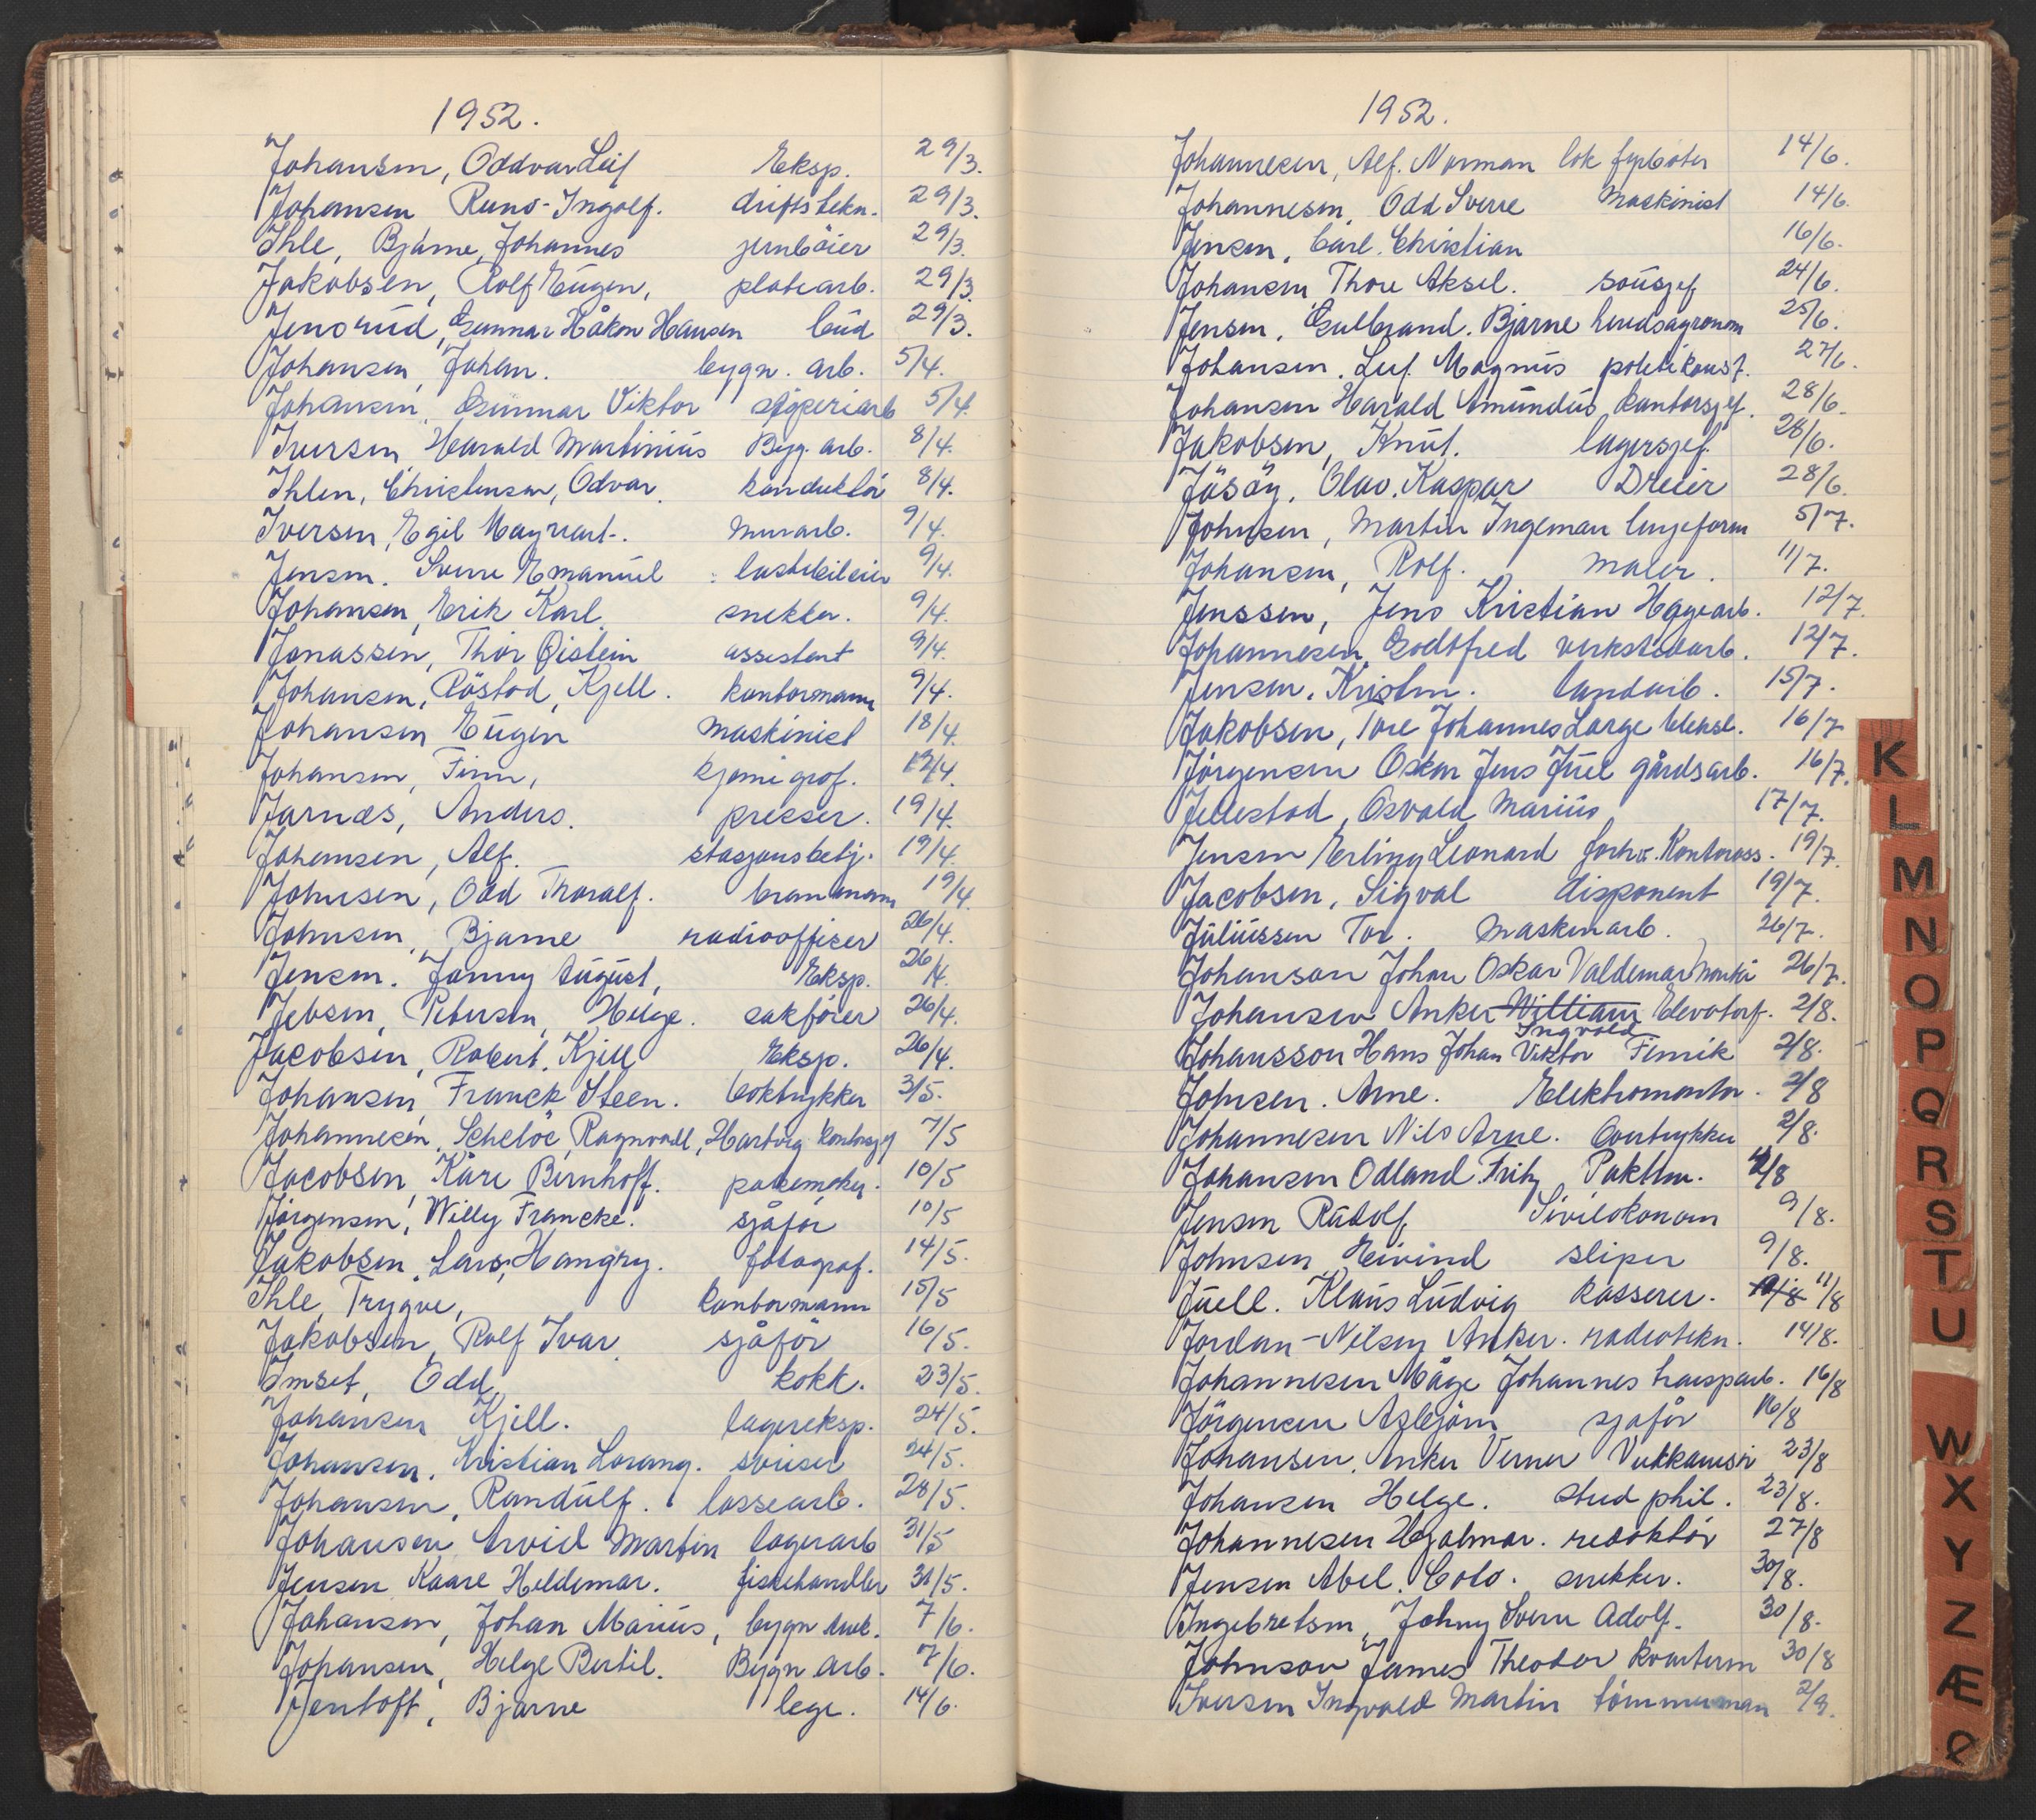 1952.
Johansen, Oddvar Leif Eksp. 29/3.
Johansen Runo-Ingolf. driftstekn. 29/3.
Ihle, Bjarne, Johannes jernböier 29/3.
Jakobsen, Rolf Eugen, platearb. 29/3.
Jensrud, Gunnar Håkon Hansen bud 29/3.
Johansen, Johan. bygn. arb. 5/4.
Johansen, Gunnar Viktor 5/4.
Iversen Harald Martinius Byg. arb. 8/4.
Ihlen, Christensen, Odvar konduktör 8/4.
Iversen, Egil Magnart. murarb. 9/4.
Jensen. Sverre Emanuel lastebileier 9/4.
Johansen, Erik Karl. snekker. 9/4.
Jonassen, Thor Øistein assistent 9/4.
Johansen, Röstad, Kjell. kontormann 9/4.
Johansen Eugen maskinist 18/4.
Johansen, Finn, kjemigraf. 4.
Jarnæs, Anders. presser. 19/4.
Johansen, Alf. stasjonsbetj. 19/4.
Johnsen, Odd Thoralf. brannmann 19/4.
Johnsen, Bjarne radiooffiser 26/4.
Jensen. Jonny August, Eksp. 26/4.
Jebsen, Petersen, Helge. sakförer 26/4.
Jacobsen, Robert, Kjell Eksp. 26/4.
Johansen, Franck Steen. boktrykker 3/5.
Johannesen, Schelöe, Ragnvald, Hartvig kontorsjef 7/5
Jacobsen, Kåre Bernhoff. 10/5
Jörgensen, Willy Francke. sjåför 10/5
Jakobsen, Lars, Hangry. fotograf. 14/5.
Ihle, Trygve, kontormann 15/5
Jakobsen, Rolf Ivar. sjåför 16/5.
Imset, Odd, kokk. 23/5.
Johansen Kjell. lagereksp. 24/5.
Johansen, Kristian Lorang. sveiser 24/5.
Johansen, Randulf. lossearb. 28/5.
Johansen Arvid Martin lagerarb 31/5
Jensen Kaare Heldemar. fiskehandler 31/5.
Johansen, Johan Marius, bygn. arb. 7/6.
Johansen, Helge Bertil. Bygn arb. 7/6.
Jentoft, Bjarne lege. 14/6.
1952.
Johannesen, Alf. Norman lok fyrböter 14/6.
Johannesen, Odd Sverre Maskinist 14/6.
Jensen, Carl. Christian 16/6.
Johansen Thore Aksel. sousjef 24/6.
Jensen, Gulbrand. Bjarne herredsagronom 25/6.
Johansen. Leif. Magnus politikonst. 27/6.
Johansen Harald Amundus kontorsjef. 28/6.
Jakobsen, Knut. lagersjef. 28/6.
Jösöy, Olav. Kaspar Dreier 28/6.
Johnsen, Martin Ingeman 5/7.
Johansen, Rolf. maler. 11/7.
Jenssen, Jens Kristian Hagearb. 12/7.
Johannesen, Godtfred verkstedarb. 12/7.
Jensen, Kristen. landarb. 15/7.
Jakobsen, Tore Johannes Lorge 16/7
Jörgensen Oskar Jens Juel gårdsarb. 16/7.
Jellestad, Osvald Marius 17/7.
Jensen Erling Leonard forhv. Kontorass. 19/7.
Jacobsen, Sigval disponent 19/7.
Juliussen Tor. Maskinarb. 26/7.
Johanson Johan Oskar Valdemar 26/7.
Johansen Anker William Elevatorf. 2/8.
Ingvald
Johansson Hans Johan Viktor Fenrik 2/8.
Johnsen. Arne. Elektromontør. 2/8
Johannesen Nils Arne. 2/8.
Johansen Odland Fritz Pakkm. 2/8
Jensen Rudolf Sivilökonom 9/8.
Johnsen Eivind sliper 9/8.
Juell. Klaus Ludvig kasserer. 11/8
Jordan-Nilsen Anker. radiotekn. 14/8.
Johannesen Måge Johannes 16/8
Jörgensen Asbjørn sjåför 16/8
Johansen, Anker Verner 23/8
Johansen Helge. stud phil. 23/8.
Johannesen Hjalmar. redaktör 27/8
Jensen Abel. Colo. snekker. 30/8.
Ingebretsen, Johny Sverre Adolf. 30/8.
Johnson James Theodor kvarterm 30/8
Iversen Ingvald Martin tömmerman 2/9.
K
L
M
N
O
P
Q
R
S
T
U
W
X
Y
Z
Æ